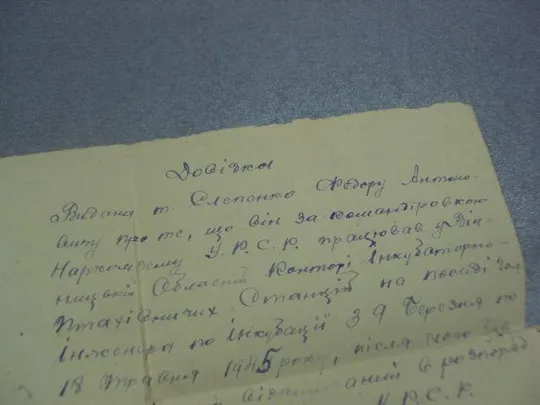 Довідка
Видана т. Слепенко Федору Антоно-
вичу про те, що він за командіровкою
Наркомзему У.Р.С.Р. працював у Він-
ницькій Обласній Конторі Інкубаторно-
Птахівничих Станцій на посаді
Інженера по Інкубації з 9 Березня по
18 Травня 1945 року, після чого
в розпоряд
У.Р.С.Р.